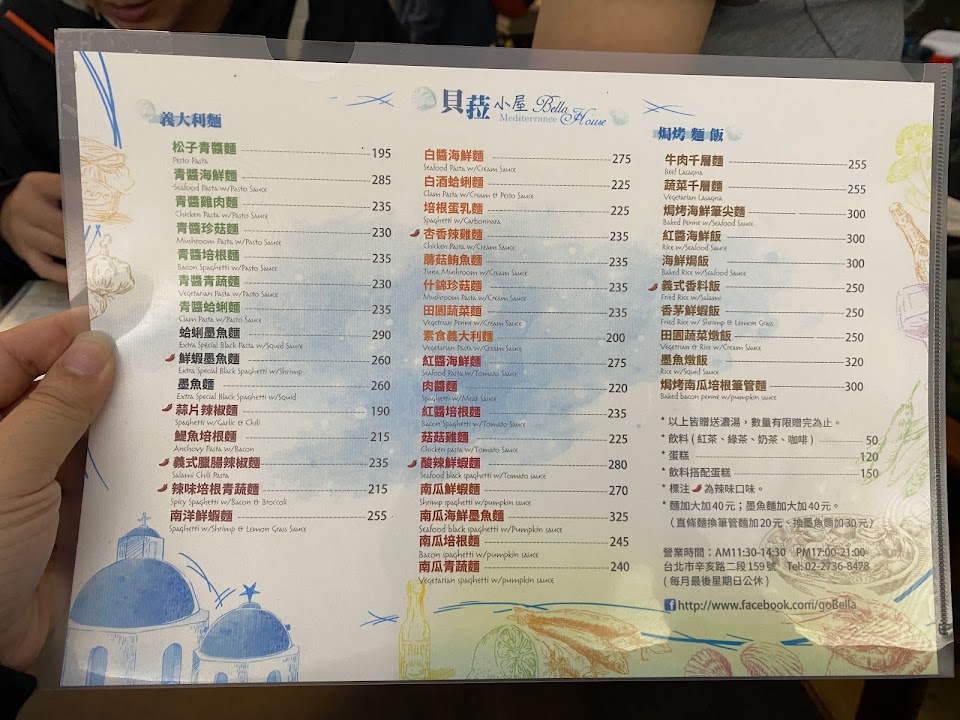 貝菈小屋 Bella House
Mediterrance
義大利麵
松子青醬麵 195
Pesto Pasta
青醬海鮮麵 285
Seafood Pasta w/Pasto Sauce
青醬雞肉麵 235
Chicken Pasta w/Pasto Sauce
青醬珍菇麵 230
Mushroom Pasta w/Pasto Sauce
青醬培根麵 235
Bacon Spaghetti w/Pasto Sauce
青醬青蔬麵 230
Vegetarian Pasta w/Pasto Sauce
青醬蛤蜊麵 235
Clam Pasta w/Pasto Sauce
蛤蜊墨魚麵 290
Extra Special Black Pasta w/Squid Sauce
鮮蝦墨魚麵 260
Extra Special Black Spaghetti w/Shrimp
墨魚麵 260
Extra Special Black Spaghetti w/Squid
蒜片辣椒麵 190
Spaghetti w/Garlic & Chili
鯷魚培根麵 215
Anchovy Pasta w/Bacon
義式臘腸辣椒麵 235
Salami Chili Pasta
辣味培根青蔬麵 215
Spicy Spaghetti w/Bacon & Broccoli
南洋鮮蝦麵 255
Spaghetti w/Shrimp & Lemon Grass Sauce
白醬海鮮麵 275
Seafood Pasta w/Cream Sauce
白酒蛤蜊麵 225
Clam Pasta w/Cream & Pesto Sauce
培根蛋乳麵 225
Spaghetti w/Carbonnara
杏香辣雞麵 235
Chicken Pasta w/Cream Sauce
蘑菇鮪魚麵 235
Tuna Mushroom w/Cream Sauce
什錦珍菇麵 235
Mushroom Pasta w/Cream Sauce
田園蔬菜麵 235
Vegetrian Penne w/Cream Sauce
素食義大利麵 200
Vegetarian Pasta w/Cream Sauce
紅醬海鮮麵 275
Seafood Pasta w/Tomato Sauce
肉醬麵 220
Spaghetti w/Meat Sauce
紅醬培根麵 235
Bacon Spaghetti w/Tomato Sauce
菇菇雞麵 225
Chicken pasta w/Tomato Sauce
酸辣鮮蝦麵 280
Seafood black spaghetti w/Tomato Sauce
南瓜鮮蝦麵 270
Shrimp spaghetti w/pumpkin sauce
南瓜海鮮墨魚麵 325
Seafood black spaghetti w/Pumpkin sauce
南瓜培根麵 245
Bacon spaghetti w/pumpkin sauce
南瓜青蔬麵 240
Vegetarian spaghetti w/pumpkin sauce
焗烤麵飯
牛肉千層麵 255
Beef Lasagna
蔬菜千層麵 255
Vegetarian Lasagna
焗烤海鮮筆尖麵 300
Baked Penne w/Seafood Sauce
紅醬海鮮飯 300
Rice w/Seafood Sauce
海鮮焗飯 300
Baked Rice w/Seafood Sauce
義式香料飯 250
Fried Rice w/Salami
香茅鮮蝦飯 250
Fried Rice w/ Shrimp & Lemon Grass
田園蔬菜燉飯 250
Vegetrian & Rice w/Cream Sauce
墨魚燉飯 320
Rice w/Squid Sauce
焗烤南瓜培根筆管麵 300
Baked bacon penne w/pumpkin sauce
* 以上皆贈送濃湯，數量有限贈完為止。
* 飲料 ( 紅茶、綠茶、奶茶、咖啡 ) 50
* 蛋糕 120
* 飲料搭配蛋糕 150
* 標注 為辣味口味。
* 麵加大加40元；墨魚麵加大加40元。
（直條麵換筆管麵加20元、換墨魚麵加30元）
營業時間：AM11:30-14:30 PM17:00-21:00
台北市辛亥路二段159號 Tel:02-2736-8478
( 每月最後星期日公休 )
http://www.facebook.com/goBella